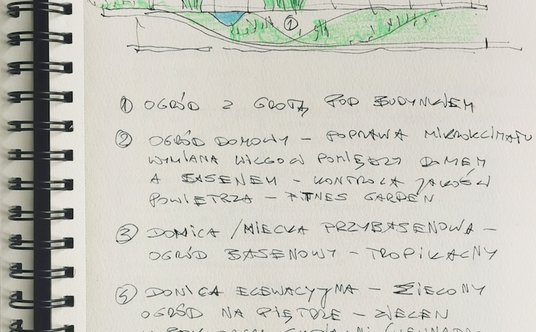 ①
① OGRÓD Z GROTĄ POD BUDYNKIEM
② OGRÓD DOMOWY – POPRAWA MIKROKLIMATU
WYMIANA WILGOCI POMIĘDZY DOMEM
A BASENEM – KONTROLA JAKOŚCI
POWIETRZA – FITNES GARDEN
③ DONICA / NIECKA PRZYBASENOWA –
OGRÓD BASENOWY – TROPIKALNY
④ DONICA ELEWACYJNA – ZIELONY
OGRÓD NA PIĘTRZE – ZIELEŃ